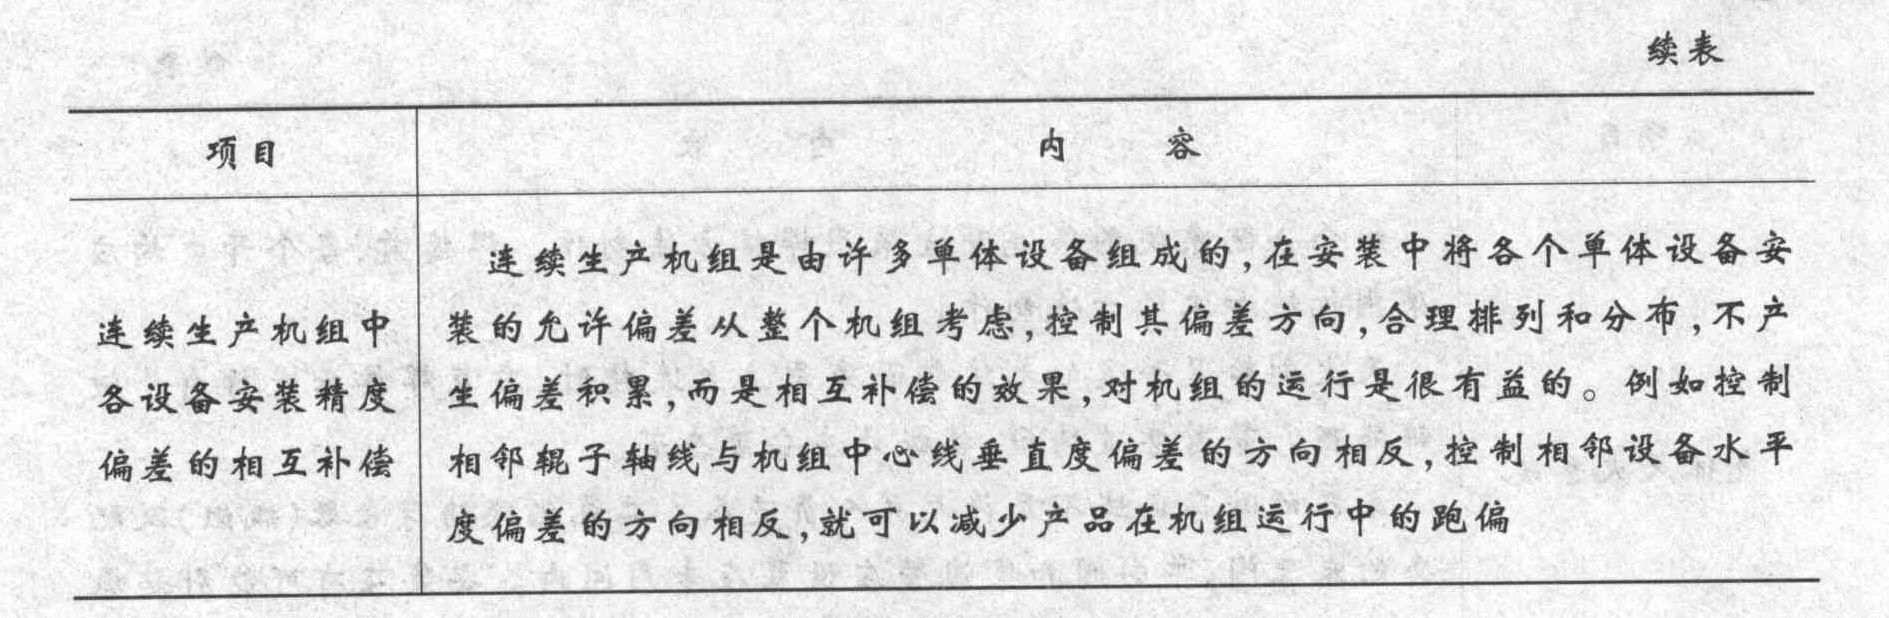 续表
项目
内 容
连续生产机组中
各设备安装精度
偏差的相互补偿
连续生产机组是由许多单体设备组成的,在安装中将各个单体设备安
装的允许偏差从整个机组考虑,控制其偏差方向,合理排列和分布,不产
生偏差积累,而是相互补偿的效果,对机组的运行是很有益的。例如控制
相邻辊子轴线与机组中心线垂直度偏差的方向相反,控制相邻设备水平
度偏差的方向相反,就可以减少产品在机组运行中的跑偏